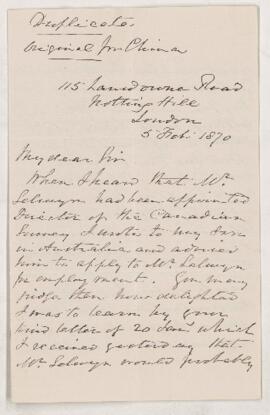 Duplicate
Original for China
115 Lansdowne Road
Notting Hill
London
5 Feb. 1870
My dear Sir
When I heard that Mr.
Selwyn had been appointed
Director of the Canadian
Survey I wrote to my Son
in Australia and advised
him to apply to Mr. Selwyn
for employment. You may
judge then how delighted
I was to learn by your
kind letter of 20 Jany. which
I received yesterday that
Mr. Selwyn would probably